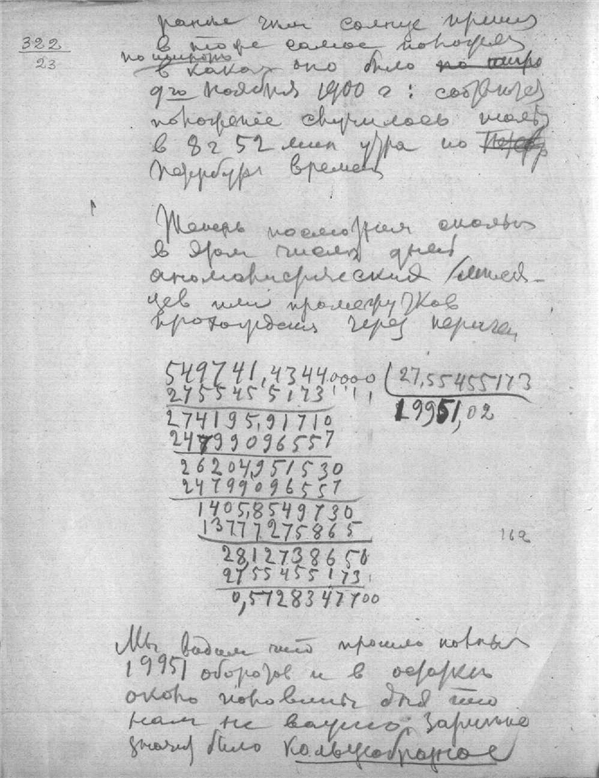 322
23
раньше чем солнце пришло
в тоже самое положение
в каком оно было
9го Ноября 1900 г:
положение случилось
в 8 г 52 мин утра по
времен
Теперь посмотрим сколько
в этом числе дней
аномалистический месяцев
или промежутков
прохождения через перигей
549741,4344,0000 27,55455173
2755455173
19951,02
274195,91710
24799096557
26204,951530
24799096557
1405,8549730
13777275865
162
28,12738650
2755455173
0,5728347700
Мы видим что прошло полных
19951 оборотов и в остатке
около половины дня что
нам не важно.
значит было кольцеобразное